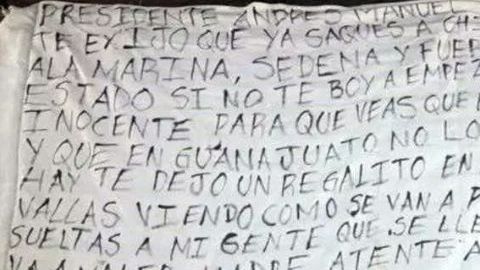 PRESIDENTE ANDRES MANUEL
TE EXIJO QUE YA SAQUES A
ALA MARINA, SEDENA Y
ESTADO SI NO TE BOY A
INOCENTE PARA QUE VEAS QUE
Y QUE EN GUANAJUATO NO
HAY TE DEJO UN REGALITO EN
VALLAS VIENDO COMO SE VAN A
SUELTAS A MI GENTE QUE SE
MADRE ATENTE